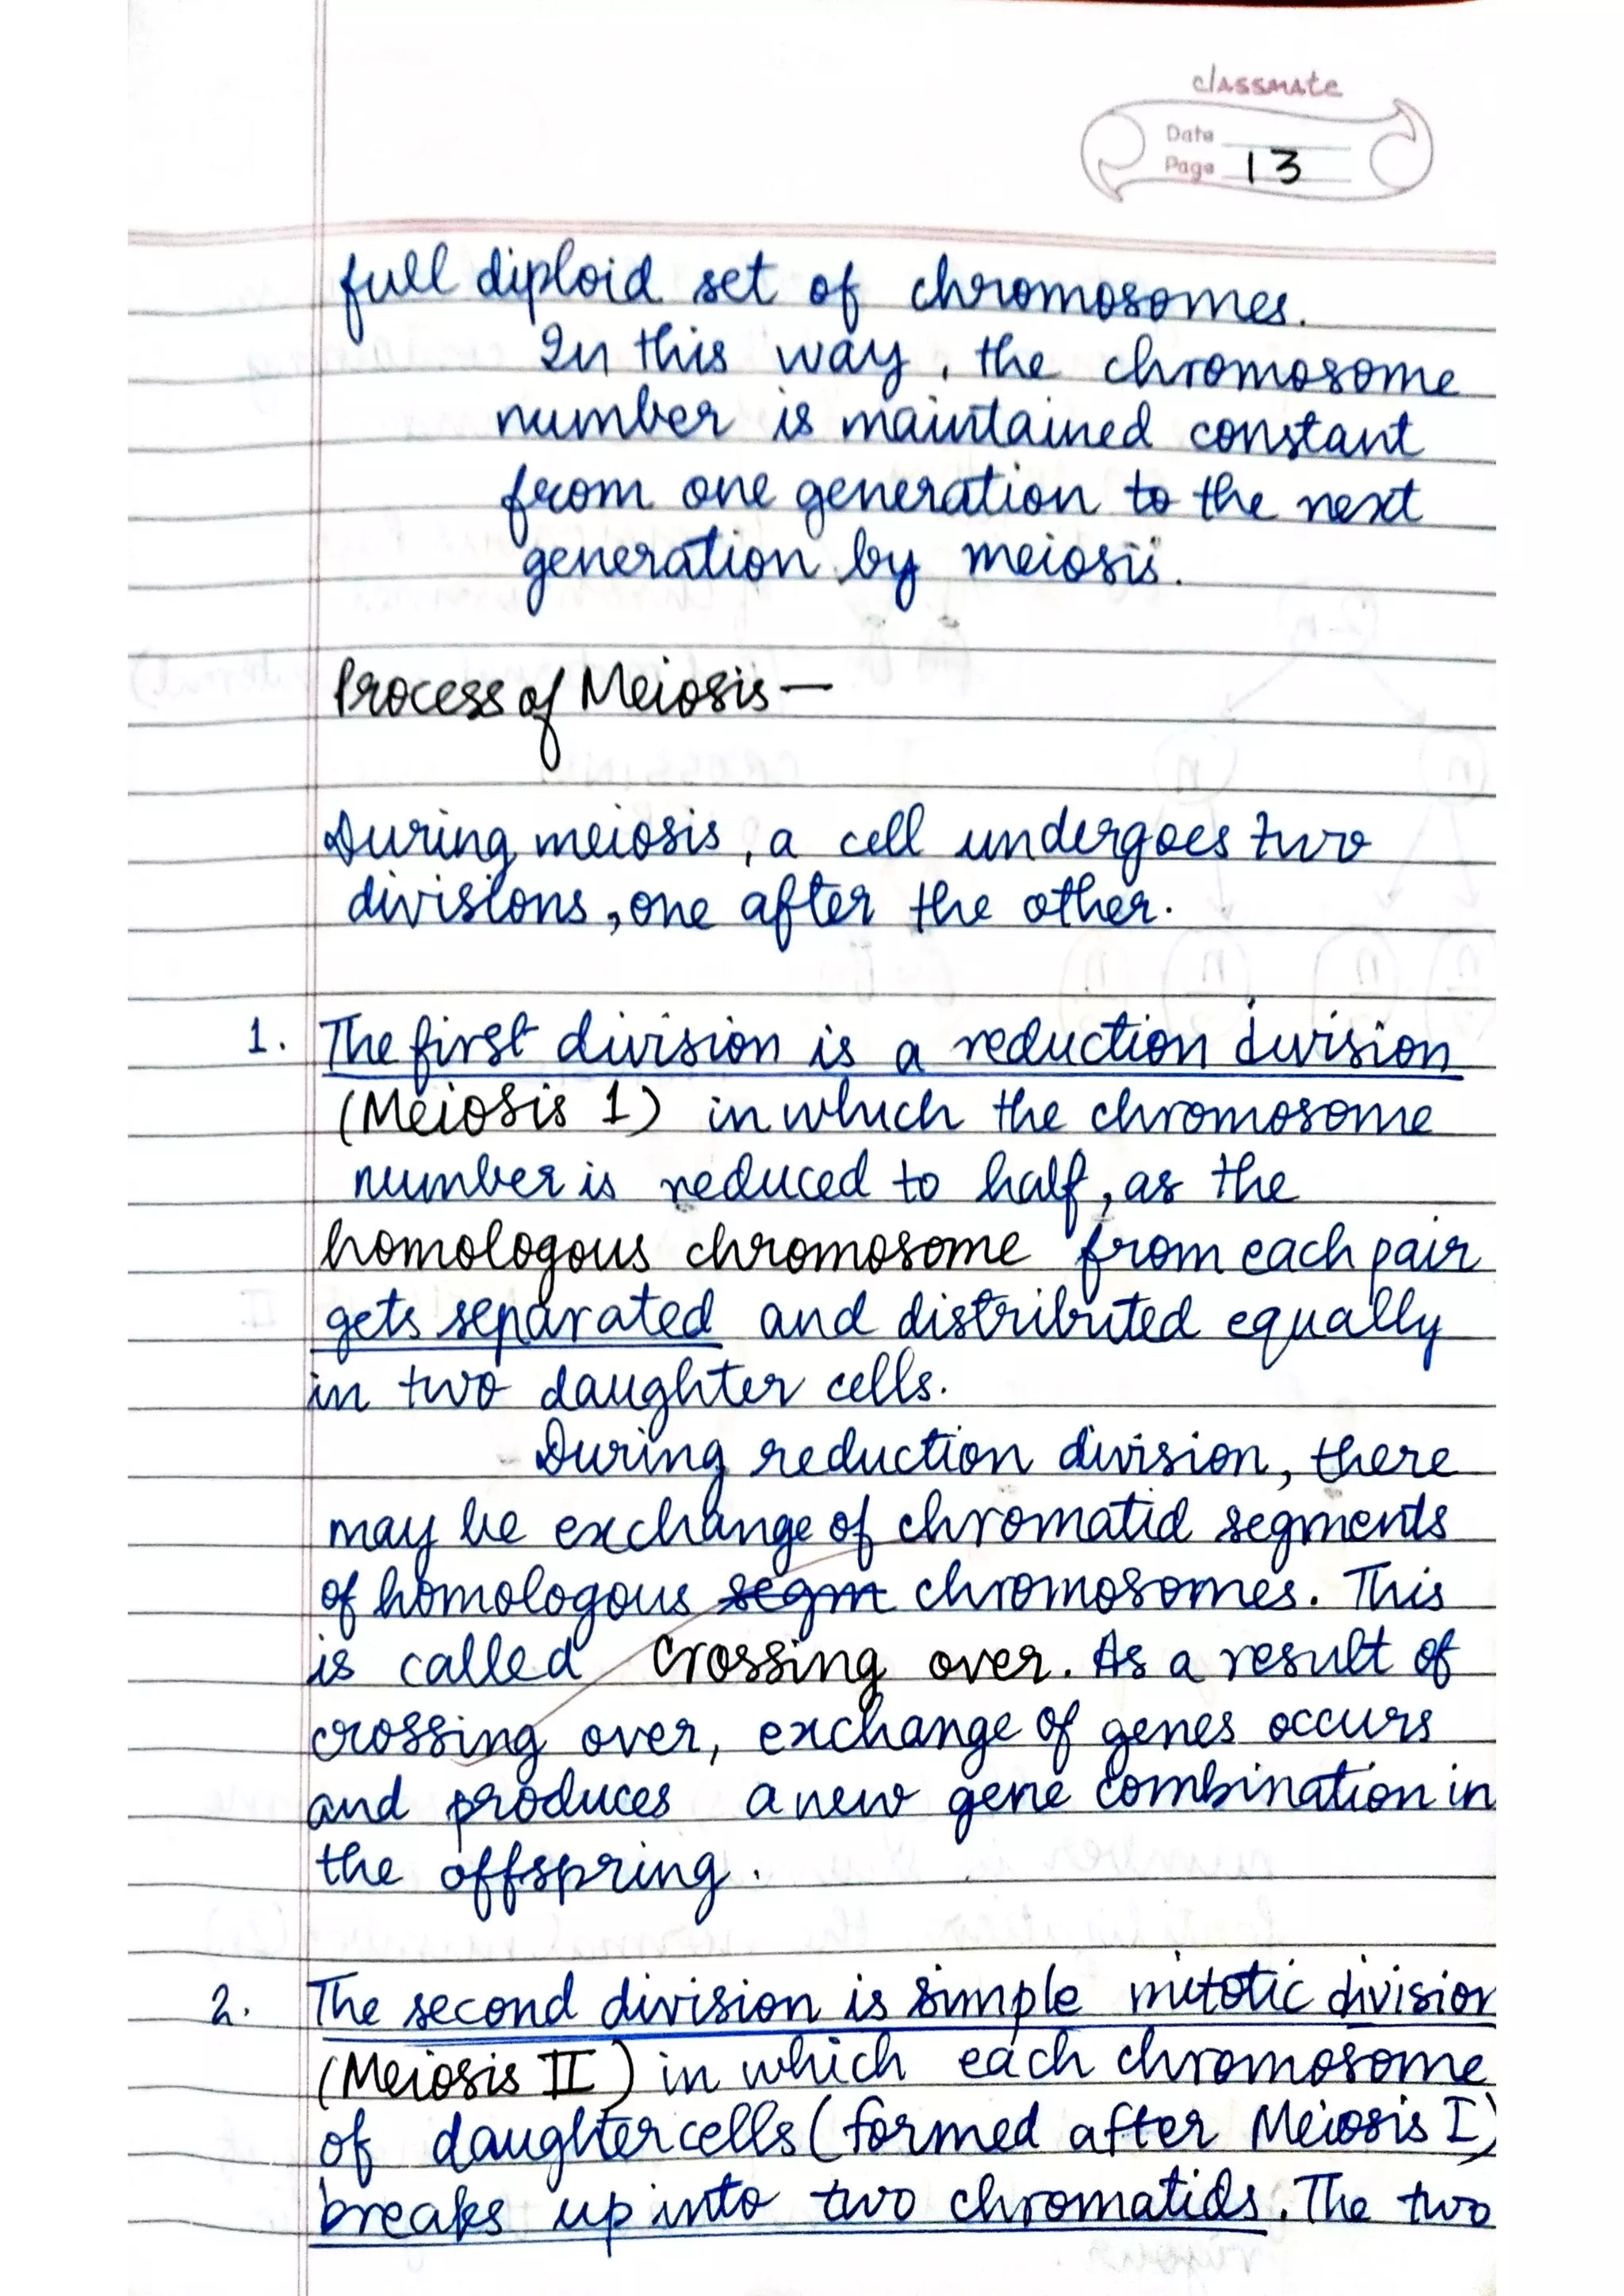 classmate
Date
Page 13
full diploid set of chromosomes.
In this way, the chromosome
number is maintained constant
from one generation to the next
generation by meiosis.
Process of Meiosis —
During meiosis, a cell undergoes two
divisions, one after the other.
1. The first division is a reduction division
(Meiosis 1) in which the chromosome
number is reduced to half, as the
homologous chromosome from each pair
gets separated and distributed equally
in two daughter cells.
During reduction division, there
may be exchange of chromatid segments
of homologous segm chromosomes. This
is called Crossing over. As a result of
crossing over, exchange of genes occurs
and produces a new gene combination in
the offspring.
2. The second division is simple mitotic division
(Meiosis II) in which each chromosome
of daughter cells (formed after Meiosis I)
breaks up into two chromatids. The two